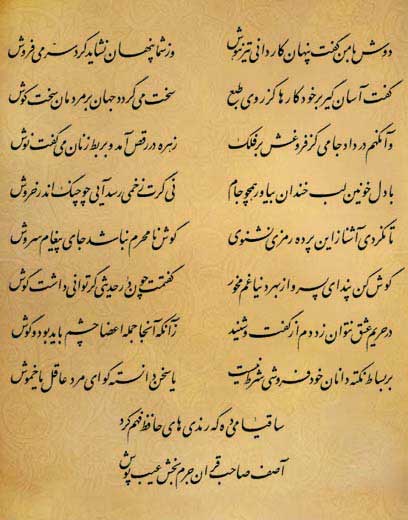 دوش با من گفت پنهان کاردانی تیزهوش وز شما پنهان نشاید کرد سر می فروش
گفت آسان گیر بر خود کارها کز روی طبع سخت می گردد جهان بر مردمان سخت کوش
وآنگهم در داد جامی کز فروغش بر فلک زهره در رقص آمد و بربط زنان می گفت نوش
با دل خونین لب خندان بیاور همچو جام نی گرت زخمی رسد آیی چو چنگ اندر خروش
تا نگردی آشنا زین پرده رمزی نشنوی گوش نامحرم نباشد جای پیغام سروش
گوش کن پند ای پسر وز بهر دنیا غم مخور گفتمت چون در حدیثی گر توانی داشت گوش
در حریم عشق نتوان زد دم از گفت و شنید زانکه آنجا جمله اعضا چشم باید بود و گوش
بر بساط نکته دانان خود فروشی شرط نیست یا سخن دانسته گو ای مرد عاقل یا خموش
ساقیا می ده که رندی های حافظ فهم کرد
آصف صاحب قران جرم بخش عیب پوش